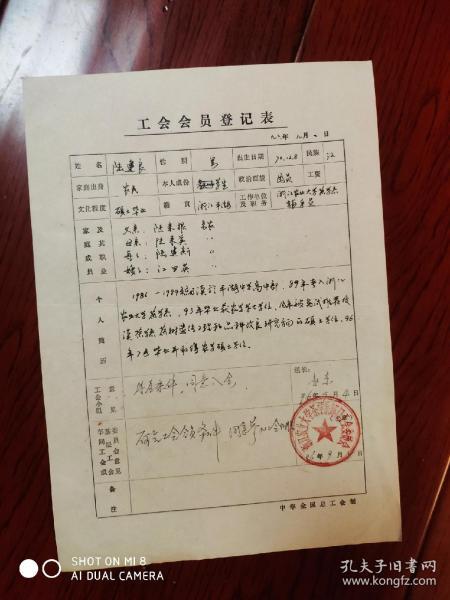 工会会员登记表
九六年 九月 二日
姓名 陆建良 性别 男 出生日期 70.12.8 民族 汉
家庭出身 农民 本人成份 学生 政治面貌 团员
文化程度 硕士毕业 籍贯 浙江平湖 工作单位及职务 浙江农业大学茶学系
家庭成员 及其职业
父亲:陆来根 务农
母亲:陆来英 〃
哥:陆建新 〃
嫂:江田英 〃
个人简历
1986—1989就读于平湖中学高中部,89年考入浙江
农业大学茶学系,93年毕业获农学学士学位,
96
年7月毕业并获得农学硕士学位。
工会小组意见
符合条件,同意入会。
组长:
车间工会或基层工会委员会意见
符合工会会员条件 同意
96年9月
备注
中华全国总工会制
SHOT ON MI 8
AI DUAL CAMERA
孔夫子旧书网
www.kongfz.com